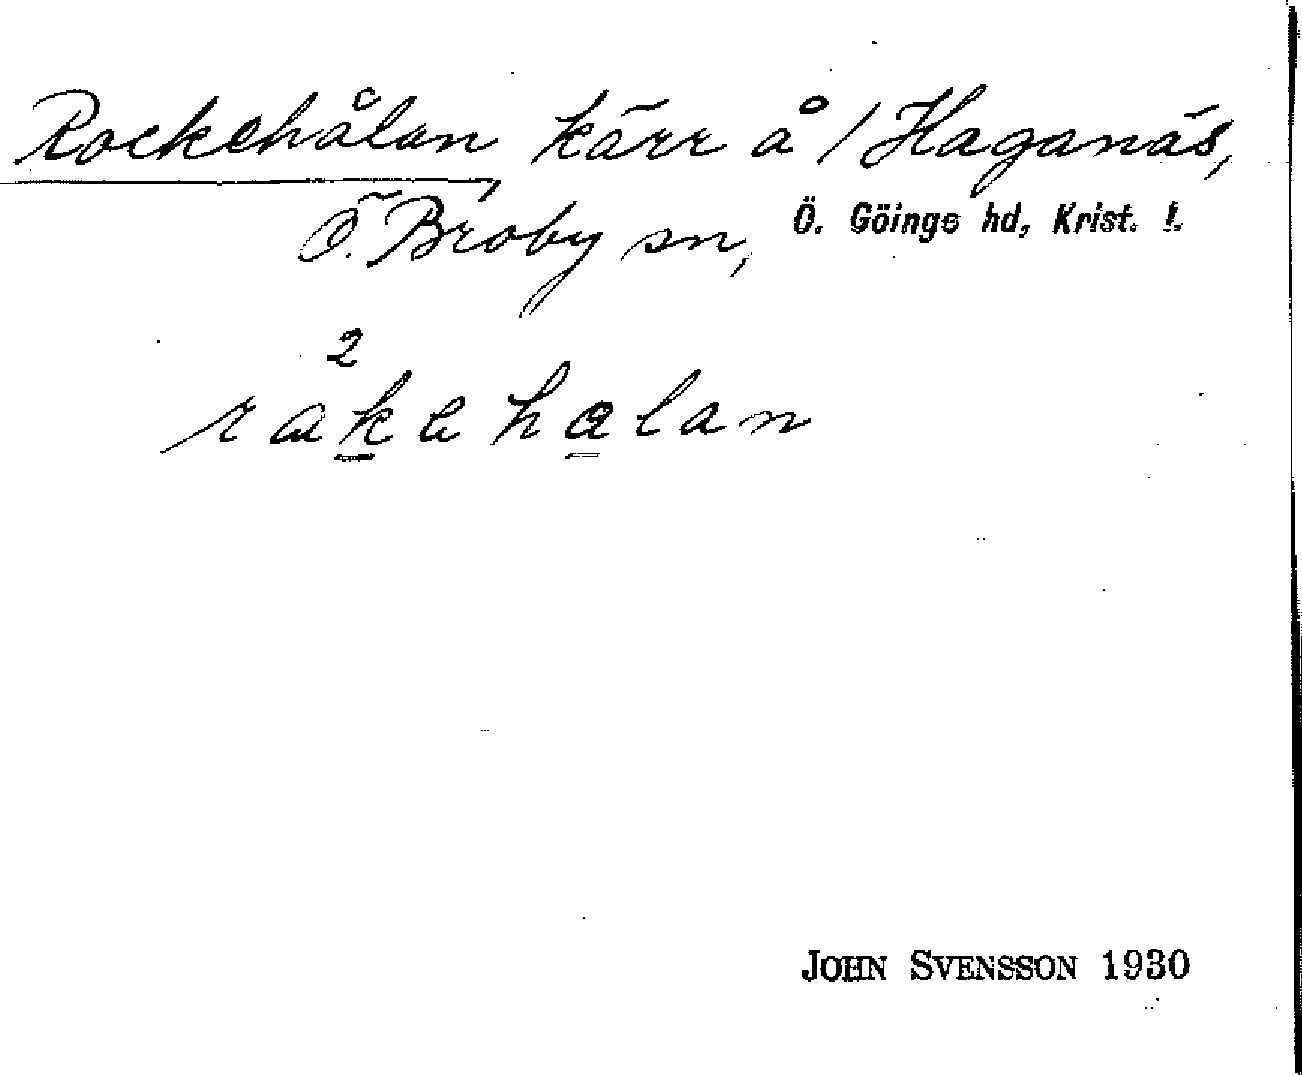 Rockehålan, kärr å / Haganäs,
Ö. Broby sn, Ö. Göinge hd, Krist. l.
2
råkehalan
JOHN SVENSSON 1930